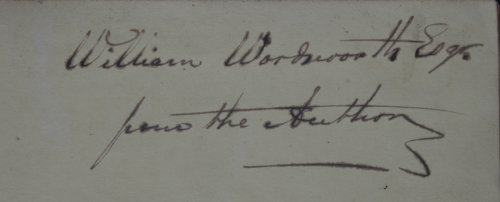 William Wordsworth Esqr.
from the Author